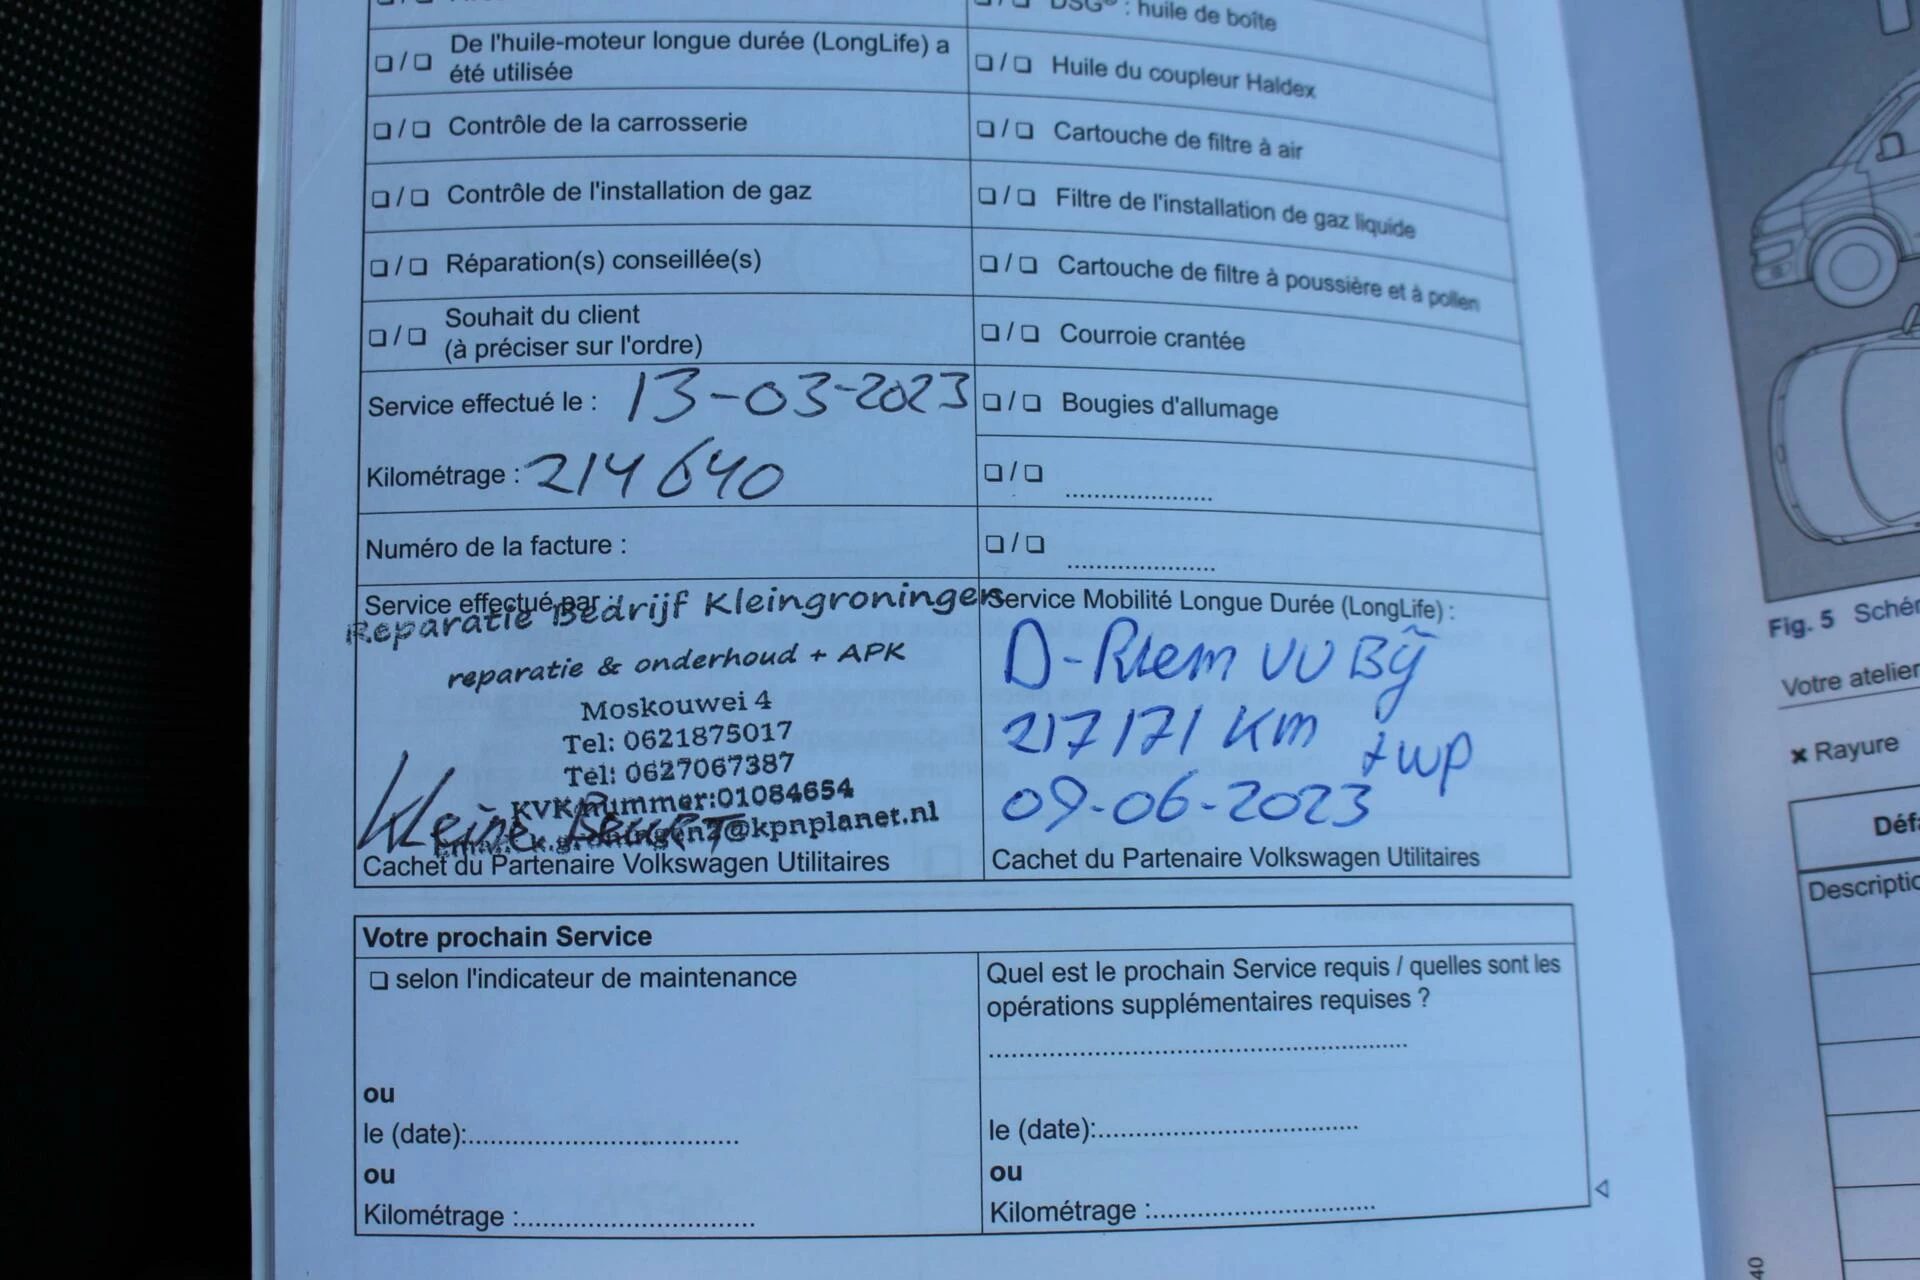 DSG® : huile de boîte
❏ / ❏ De l'huile-moteur longue durée (LongLife) a
été utilisée
❏ / ❏ Huile du coupleur Haldex
❏ / ❏ Contrôle de la carrosserie
❏ / ❏ Cartouche de filtre à air
❏ / ❏ Contrôle de l'installation de gaz
❏ / ❏ Filtre de l'installation de gaz liquide
❏ / ❏ Réparation(s) conseillée(s)
❏ / ❏ Cartouche de filtre à poussière et à pollen
❏ / ❏ Souhait du client
(à préciser sur l'ordre)
❏ / ❏ Courroie crantée
Service effectué le : 13-03-2023
❏ / ❏ Bougies d'allumage
Kilométrage : 214640
❏ / ❏ ....................
Numéro de la facture :
❏ / ❏ ....................
Service effectué par :
Reparatie Bedrijf Kleingroningen
reparatie & onderhoud + APK
Moskouwei 4
Tel: 0621875017
Tel: 0627067387
KVK nummer:01084654
@kpnplanet.nl
Kleine Beurt
Cachet du Partenaire Volkswagen Utilitaires
Service Mobilité Longue Durée (LongLife) :
D-Riem VV Bij
217171 Km + wp
09-06-2023
Cachet du Partenaire Volkswagen Utilitaires
Votre prochain Service
❏ selon l'indicateur de maintenance
ou
le (date):....................
ou
Kilométrage :....................
Quel est le prochain Service requis / quelles sont les
opérations supplémentaires requises ?
....................
le (date):....................
ou
Kilométrage :....................
Fig. 5 Schér
Votre atelier
✖ Rayure
Déf
Descriptio
40